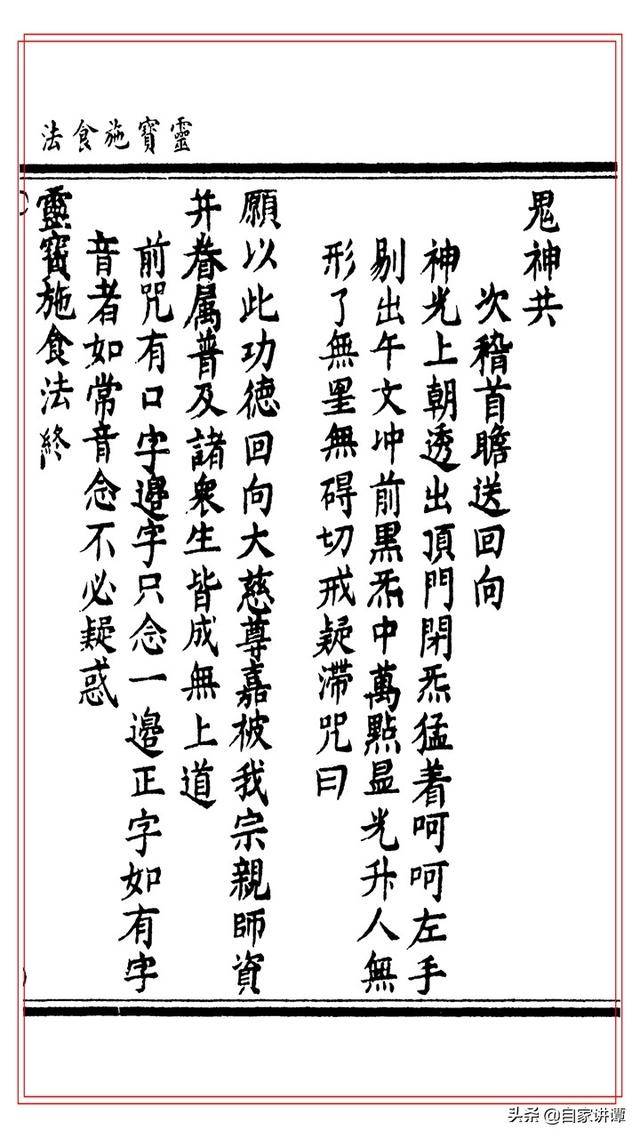 靈寶施食法
鬼神共
次稽首瞻送回向
神光上朝透出頂門閉炁猛着呵呵左手
剔出午文冲前黑炁中萬點显光升人無
形了無罣無碍切戒疑滯咒曰
願以此功德回向大慈尊嘉被我宗親師資
并眷属普及諸衆生皆成無上道
前咒有口字邉字只念一邉正字如有字
音者如常音念不必疑惑
靈寶施食法終
头条 @自家讲谭